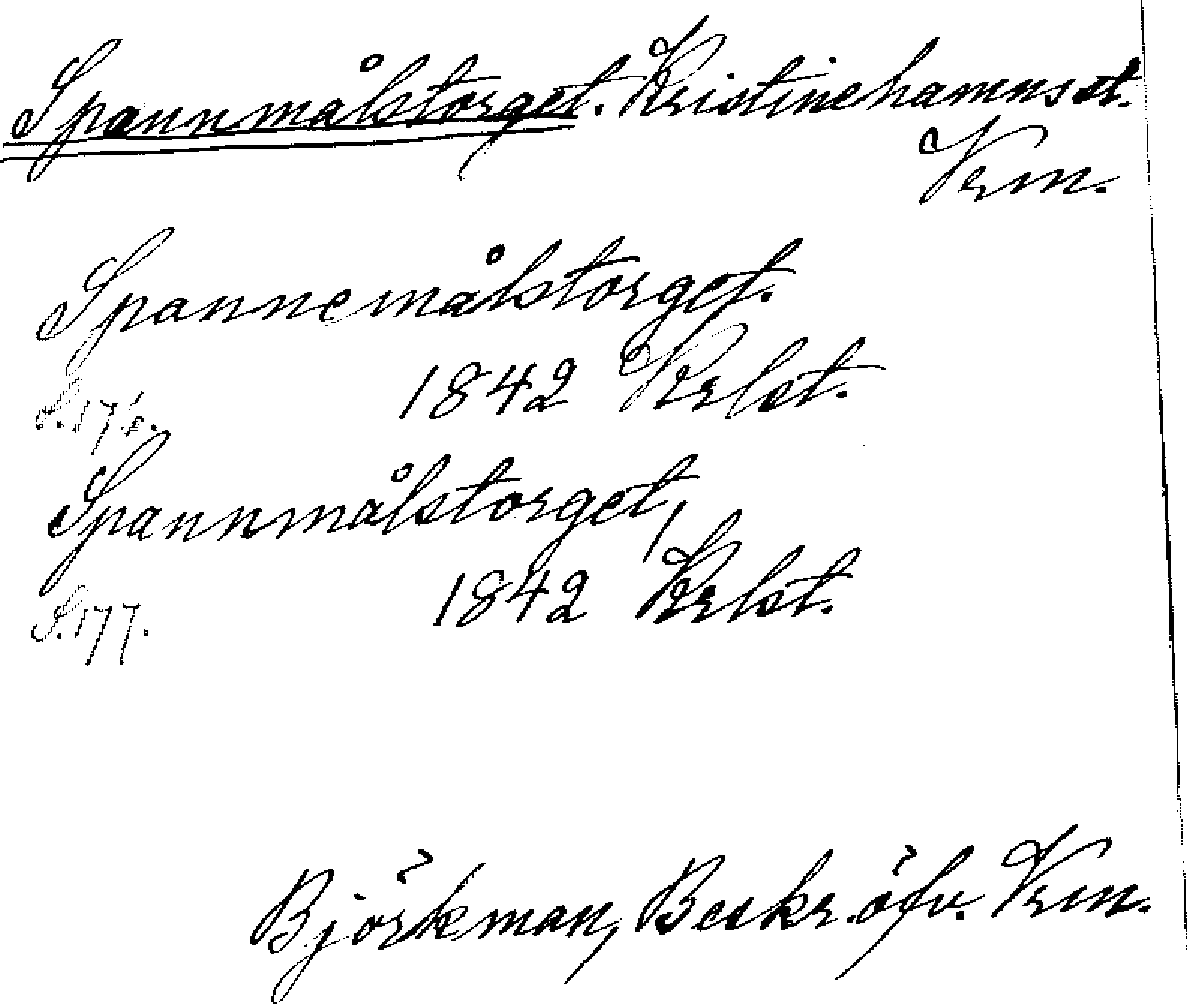 Spannmålstorget. Kristinehamns st.
Vrm.
Spannemålstorget.
1842 Krlst.
S. 
Spannmålstorget,
1842 Krlst.
S. 177.
Björkman, Beskr. öfv. Vrm.